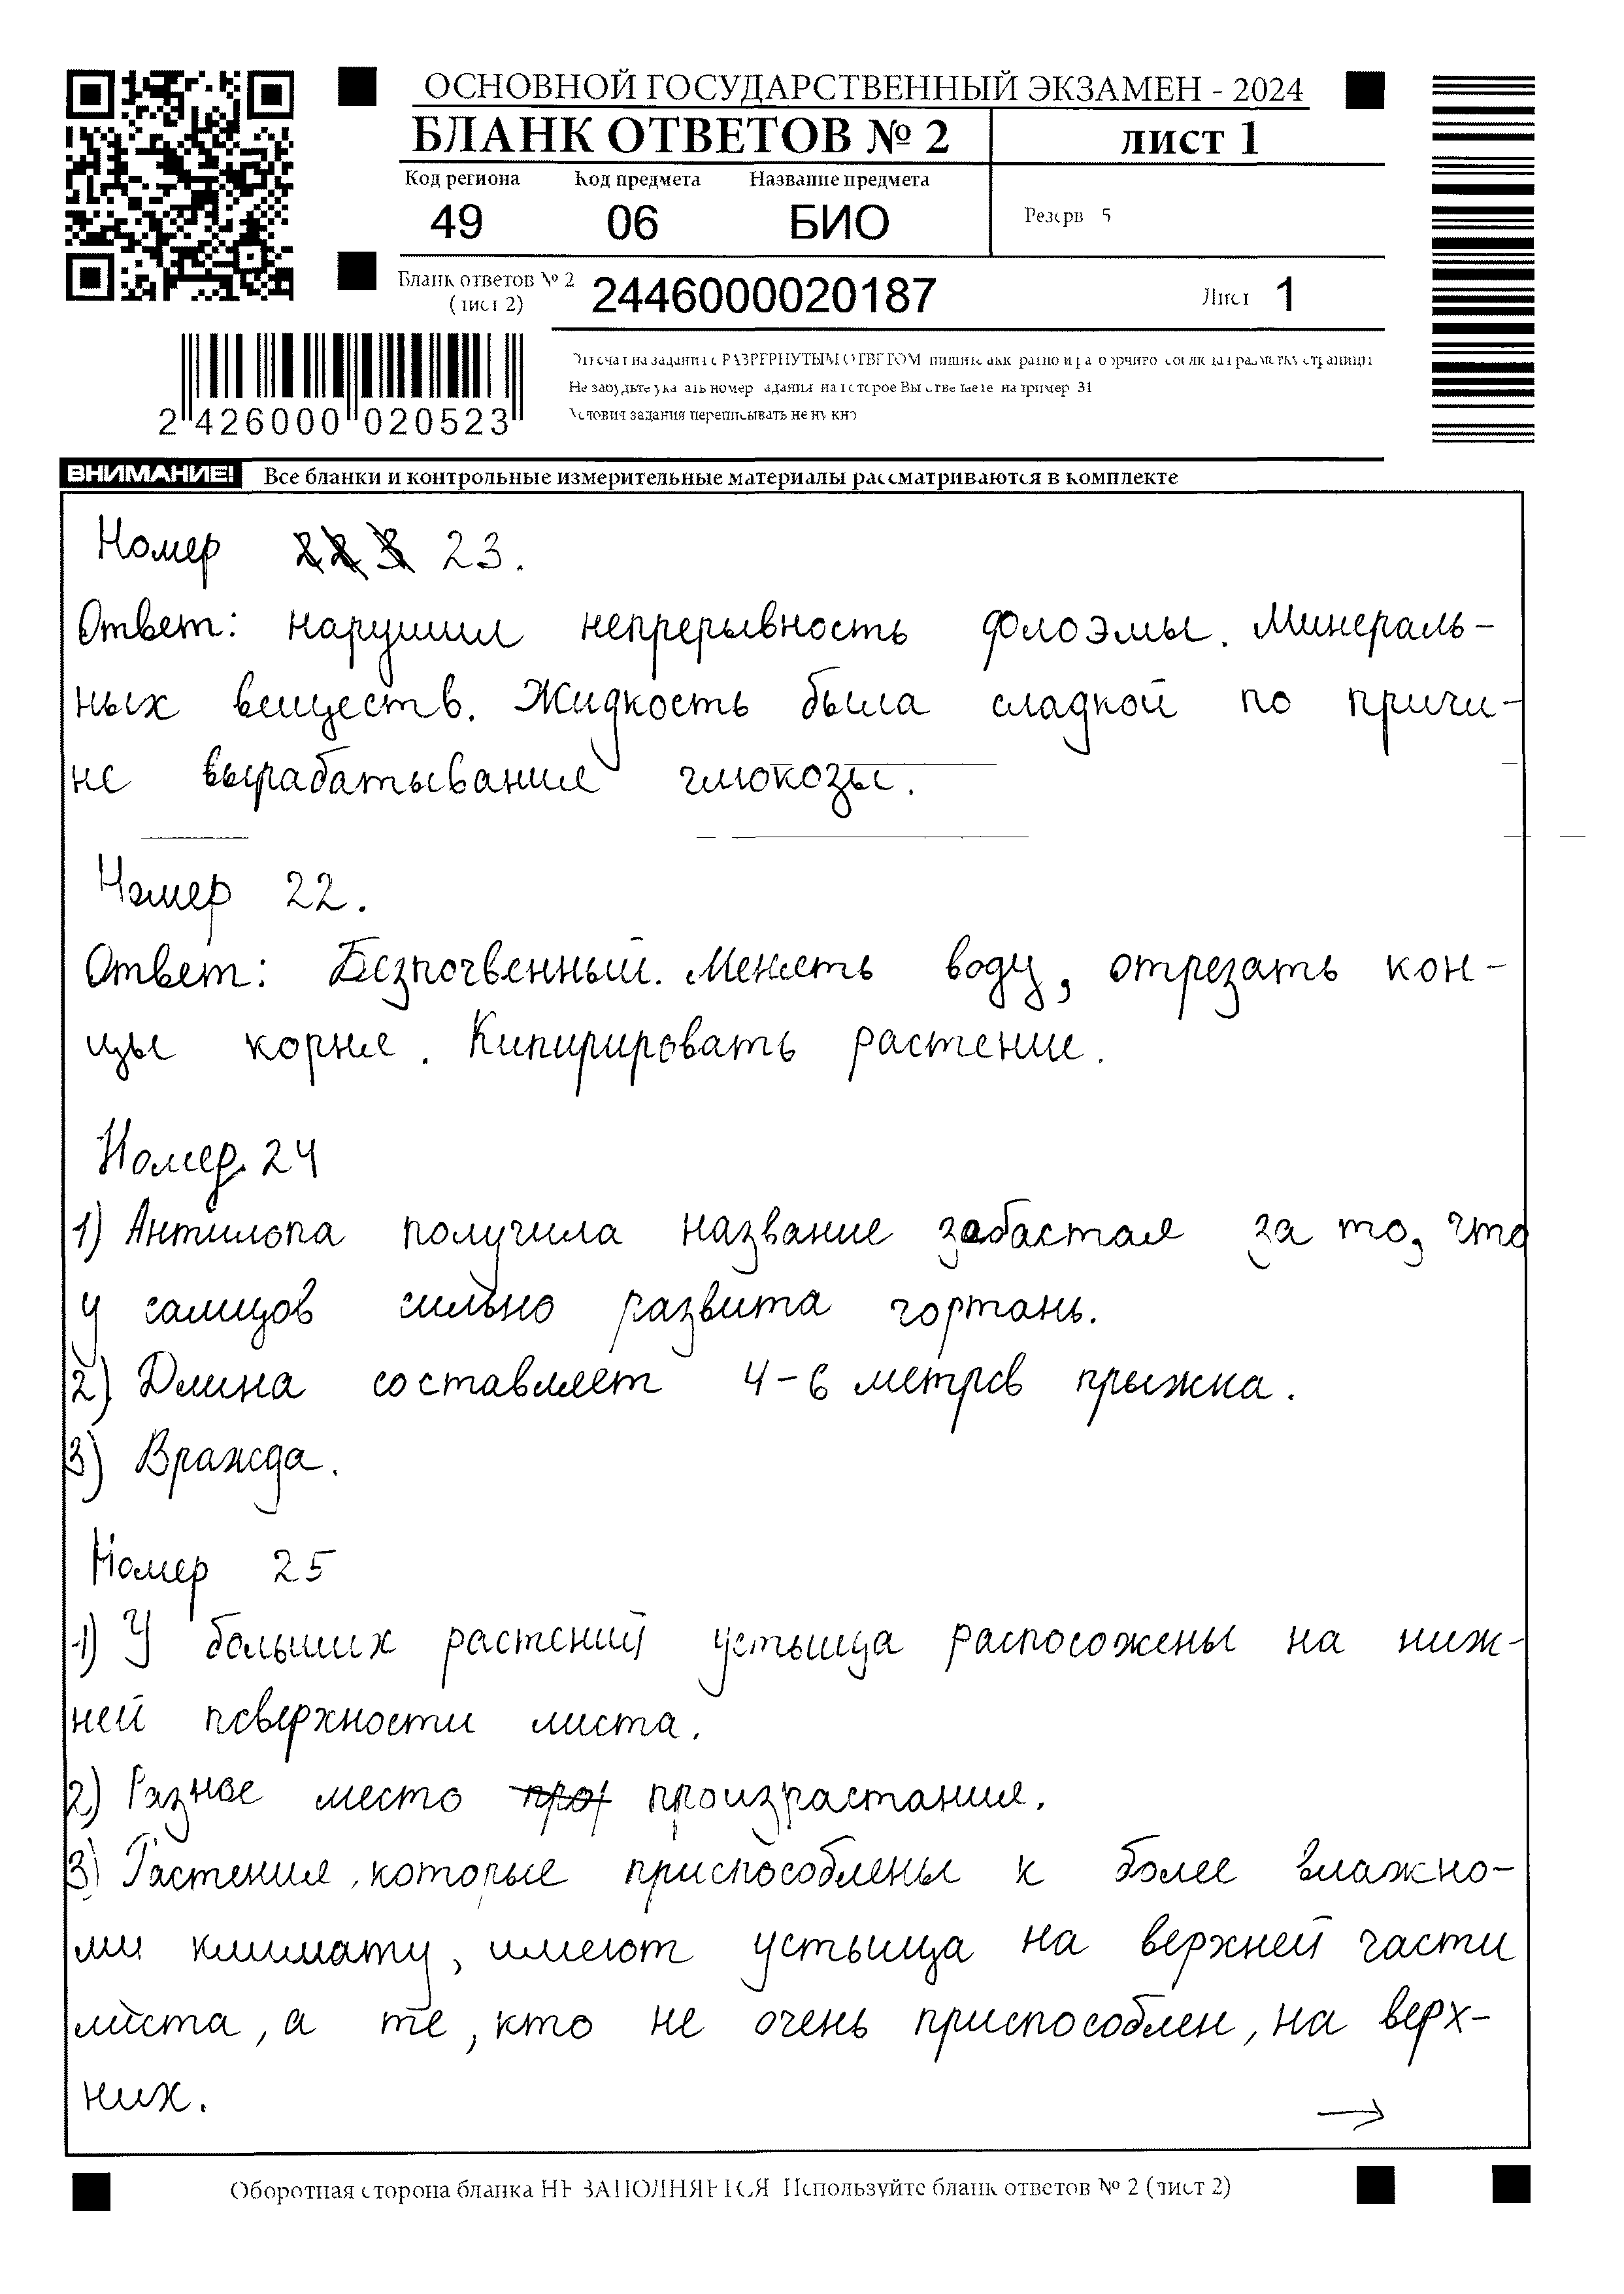 ОСНОВНОЙ ГОСУДАРСТВЕННЫЙ ЭКЗАМЕН - 2024
БЛАНК ОТВЕТОВ № 2 лист 1
Код региона Код предмета Название предмета
49 06 БИО
Резерв 5
Бланк ответов № 2
(лист 2)
2446000020187
Лист 1
2 426000 020523
Отвечая на задания с РАЗВЕРНУТЫМ ОТВЕТОМ, пишите аккуратно и разборчиво, соблюдая разметку страницы
Не забудьте указать номер задания, на которое Вы отвечаете, например 31
Условия задания переписывать не нужно
ВНИМАНИЕ! Все бланки и контрольные измерительные материалы рассматриваются в комплекте
Номер 23.
Ответ: нарушил непрерывность флоэмы. Минераль-
ных веществ. Жидкость была сладкой по причи-
не вырабатывания глюкозы.
Номер 22.
Ответ: Безпочвенный. Менять воду, отрезать кон-
цы корня. Кипирировать растение.
Номер 24
1) Антилопа получила название забастая за то, что
у самцов сильно развита гортань.
2) Длина составляет 4-6 метров прыжка.
3) Вражда.
Номер 25
1) У больших растений устьица распосожены на ниж-
ней поверхности листа.
2) Разное место произрастания.
3) Растения, которые приспособлены к более влажно-
ми климату, имеют устьица на верхней части
листа, а те, кто не очень приспособлен, на верх-
них.
→
Оборотная сторона бланка НЕ ЗАПОЛНЯЕТСЯ Используйте бланк ответов № 2 (лист 2)